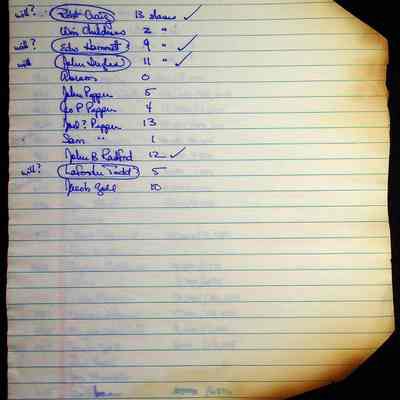 will? Robt Craig 13 slaves ✓
Wm Childress 2 "
will? Edw Hammett 9 " ✓
will John Ingles 11 " ✓
Abrams 0
John Pepper 5
Geo P Pepper 4
Pepper 13
Sam " 1
John B Radford 12 ✓
will? Todd 5
Jacob Zoll 10